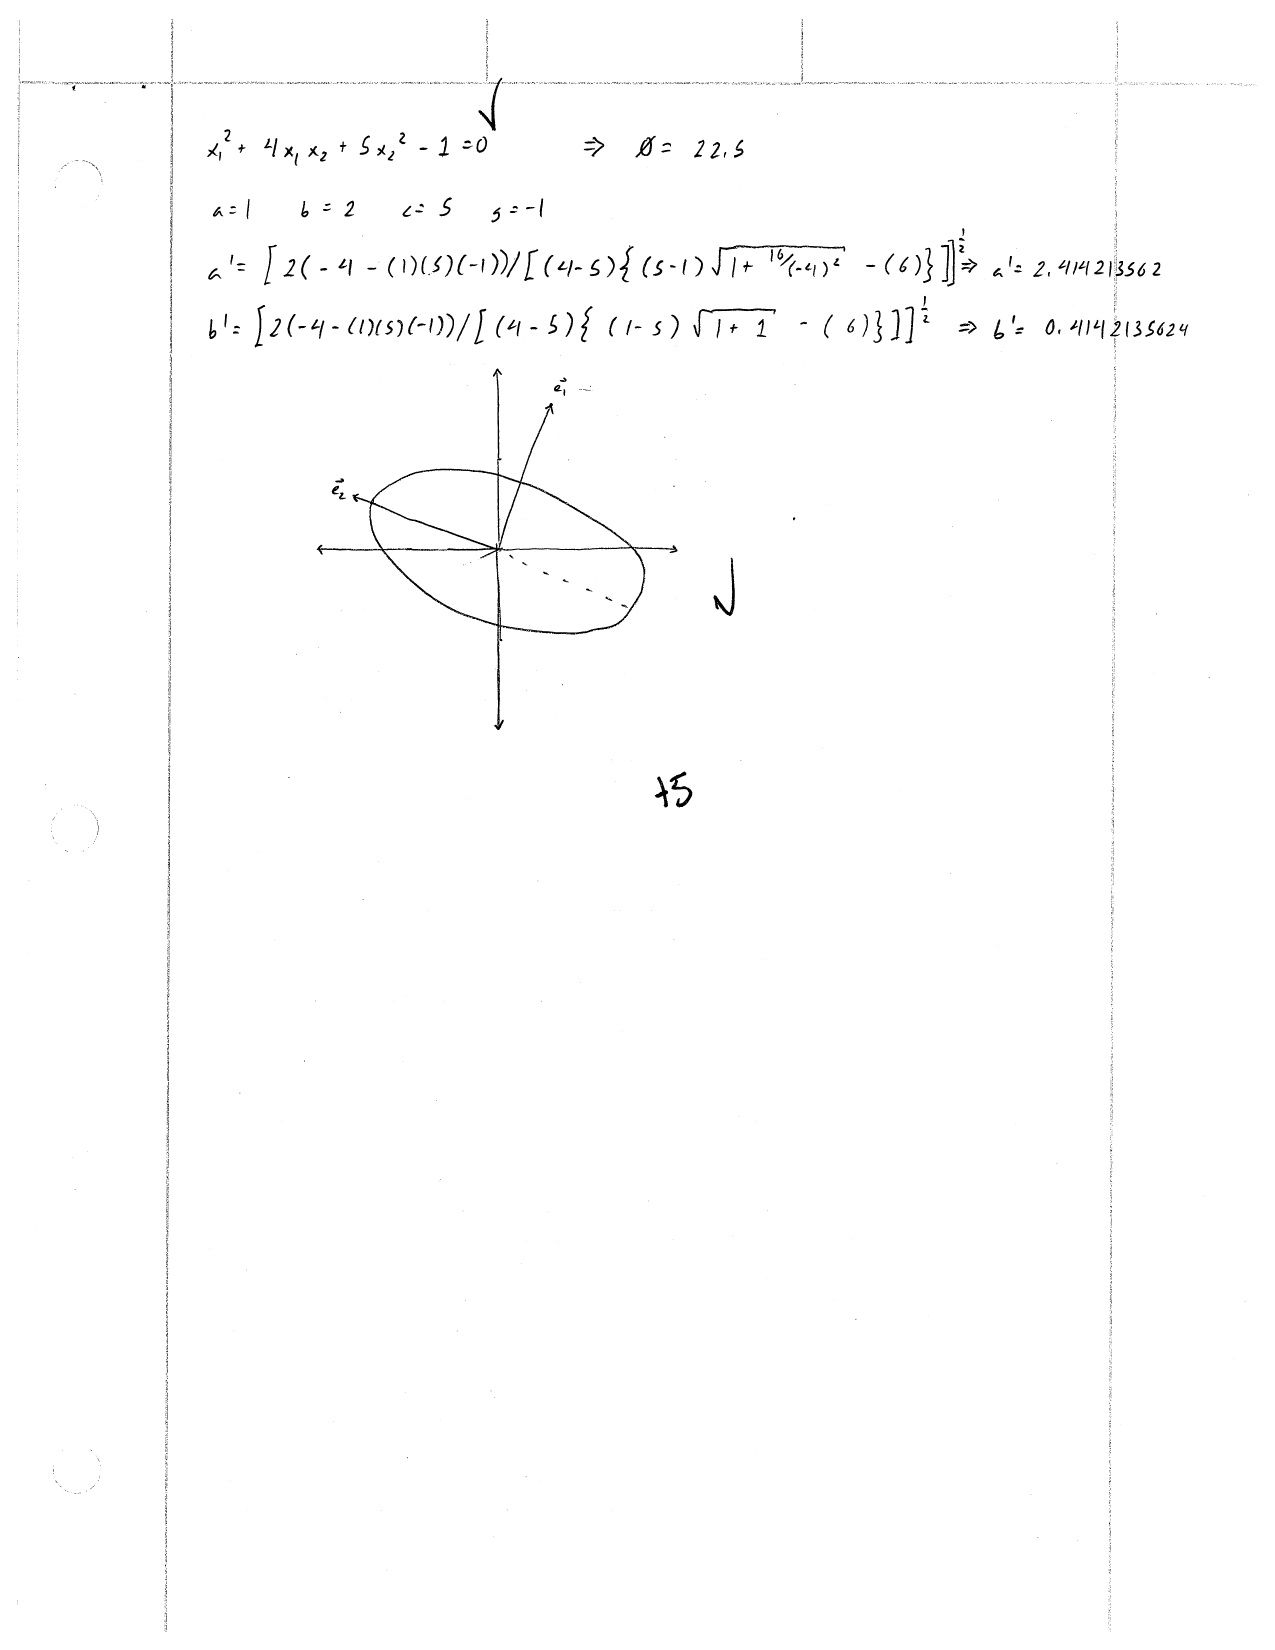 x₁² + 4x₁x₂ + 5x₂² - 1 = 0 ⇒ Ø = 22.5
a = 1 b = 2 c = 5 g = -1
a' = [2(-4 - (1)(5)(-1))/[(4-5){(5-1)√(1 + 16/(-4)²) - (6)}]]^½ ⇒ a' = 2.414213562
b' = [2(-4 - (1)(5)(-1))/[(4-5){(1-5)√(1+1) - (6)}]]^½ ⇒ b' = 0.4142135624
e⃗₁
e⃗₂
+5